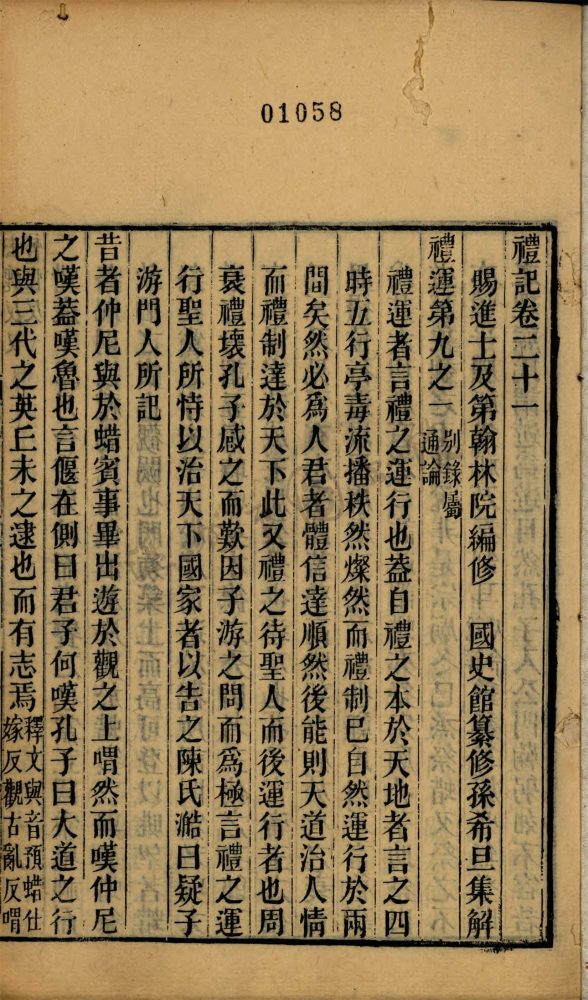 01058
禮記卷二十一
賜進士及第翰林院編修 國史館纂修孫希旦集解
禮運第九之一 別錄屬通論
禮運者言禮之運行也蓋自禮之本於天地者言之四
時五行亭毒流播秩然燦然而禮制已自然運行於兩
間矣然必爲人君者體信達順然後能則天道治人情
而禮制達於天下此又禮之待聖人而後運行者也周
衰禮壞孔子感之而歎因子游之問而爲極言禮之運
行聖人所恃以治天下國家者以告之陳氏澔曰疑子
游門人所記
昔者仲尼與於蜡賓事畢出遊於觀之上喟然而嘆仲尼
之嘆蓋嘆魯也言偃在側曰君子何嘆孔子曰大道之行
也與三代之英丘未之逮也而有志焉 釋文與音預蜡仕嫁反觀古亂反喟